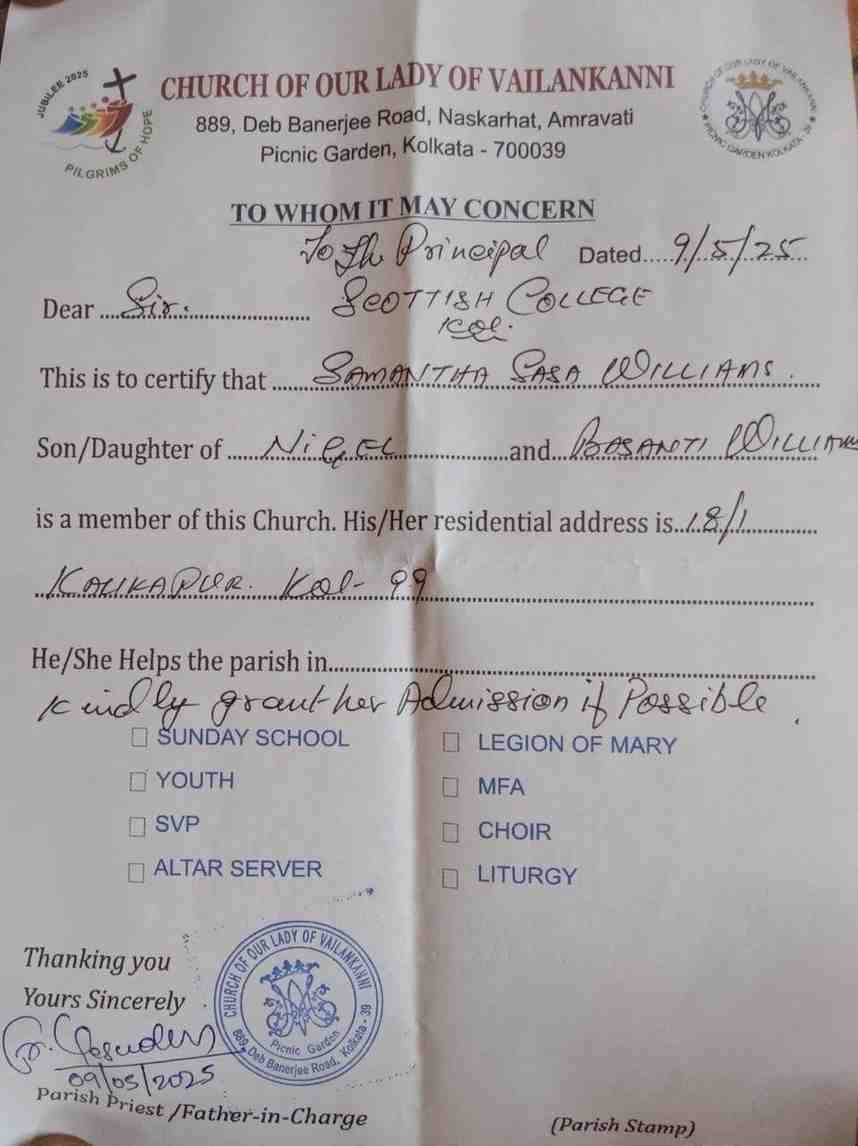 JUBILEE 2025
PILGRIMS OF HOPE
CHURCH OF OUR LADY OF VAILANKANNI
889, Deb Banerjee Road, Naskarhat, Amravati
Picnic Garden, Kolkata - 700039
CHURCH OF OUR LADY OF VAILANKANNI
PICNIC GARDEN KOLKATA - 39
TO WHOM IT MAY CONCERN
To The Principal Dated.....9/5/25
Dear ....Sir. SCOTTISH COLLEGE
Kol.
This is to certify that SAMANTHA SASA WILLIAMS.
Son/Daughter of NIGEL and BASANTI WILLIAMS
is a member of this Church. His/Her residential address is 18/1
KALIKAPUR. Kol- 99
He/She Helps the parish in
Kindly grant her Admission if Possible.
SUNDAY SCHOOL LEGION OF MARY
YOUTH MFA
SVP CHOIR
ALTAR SERVER LITURGY
Thanking you
Yours Sincerely
CHURCH OF OUR LADY OF VAILANKANNI
Picnic Garden
889, Deb Banerjee Road, Kolkata - 39
Fr.
09/05/2025
Parish Priest /Father-in-Charge
(Parish Stamp)